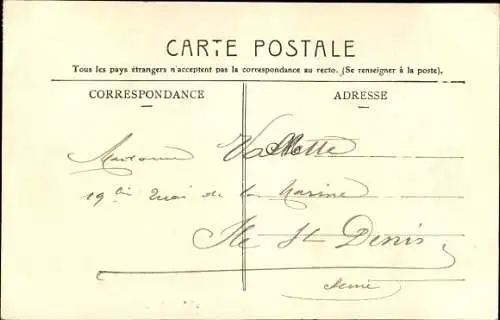 CARTE POSTALE
Tous les pays étrangers n'acceptent pas la correspondance au recto. (Se renseigner à la poste).
CORRESPONDANCE
ADRESSE
Madame Vallette
19 bis Quai de la Marine
Ile St Denis
Seine